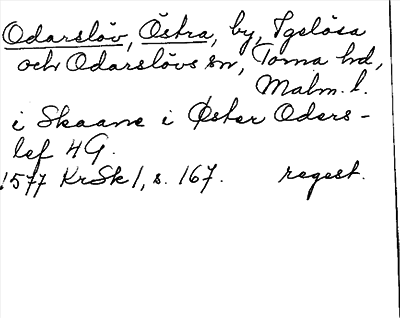 Odarslöv, Östra, by, Igelösa
och Odarslövs sn, Torna hd,
Malm. l.
i Skaane i Øster Oders-
lef 4 G.
1577 KrSk 1, s. 167. regest.